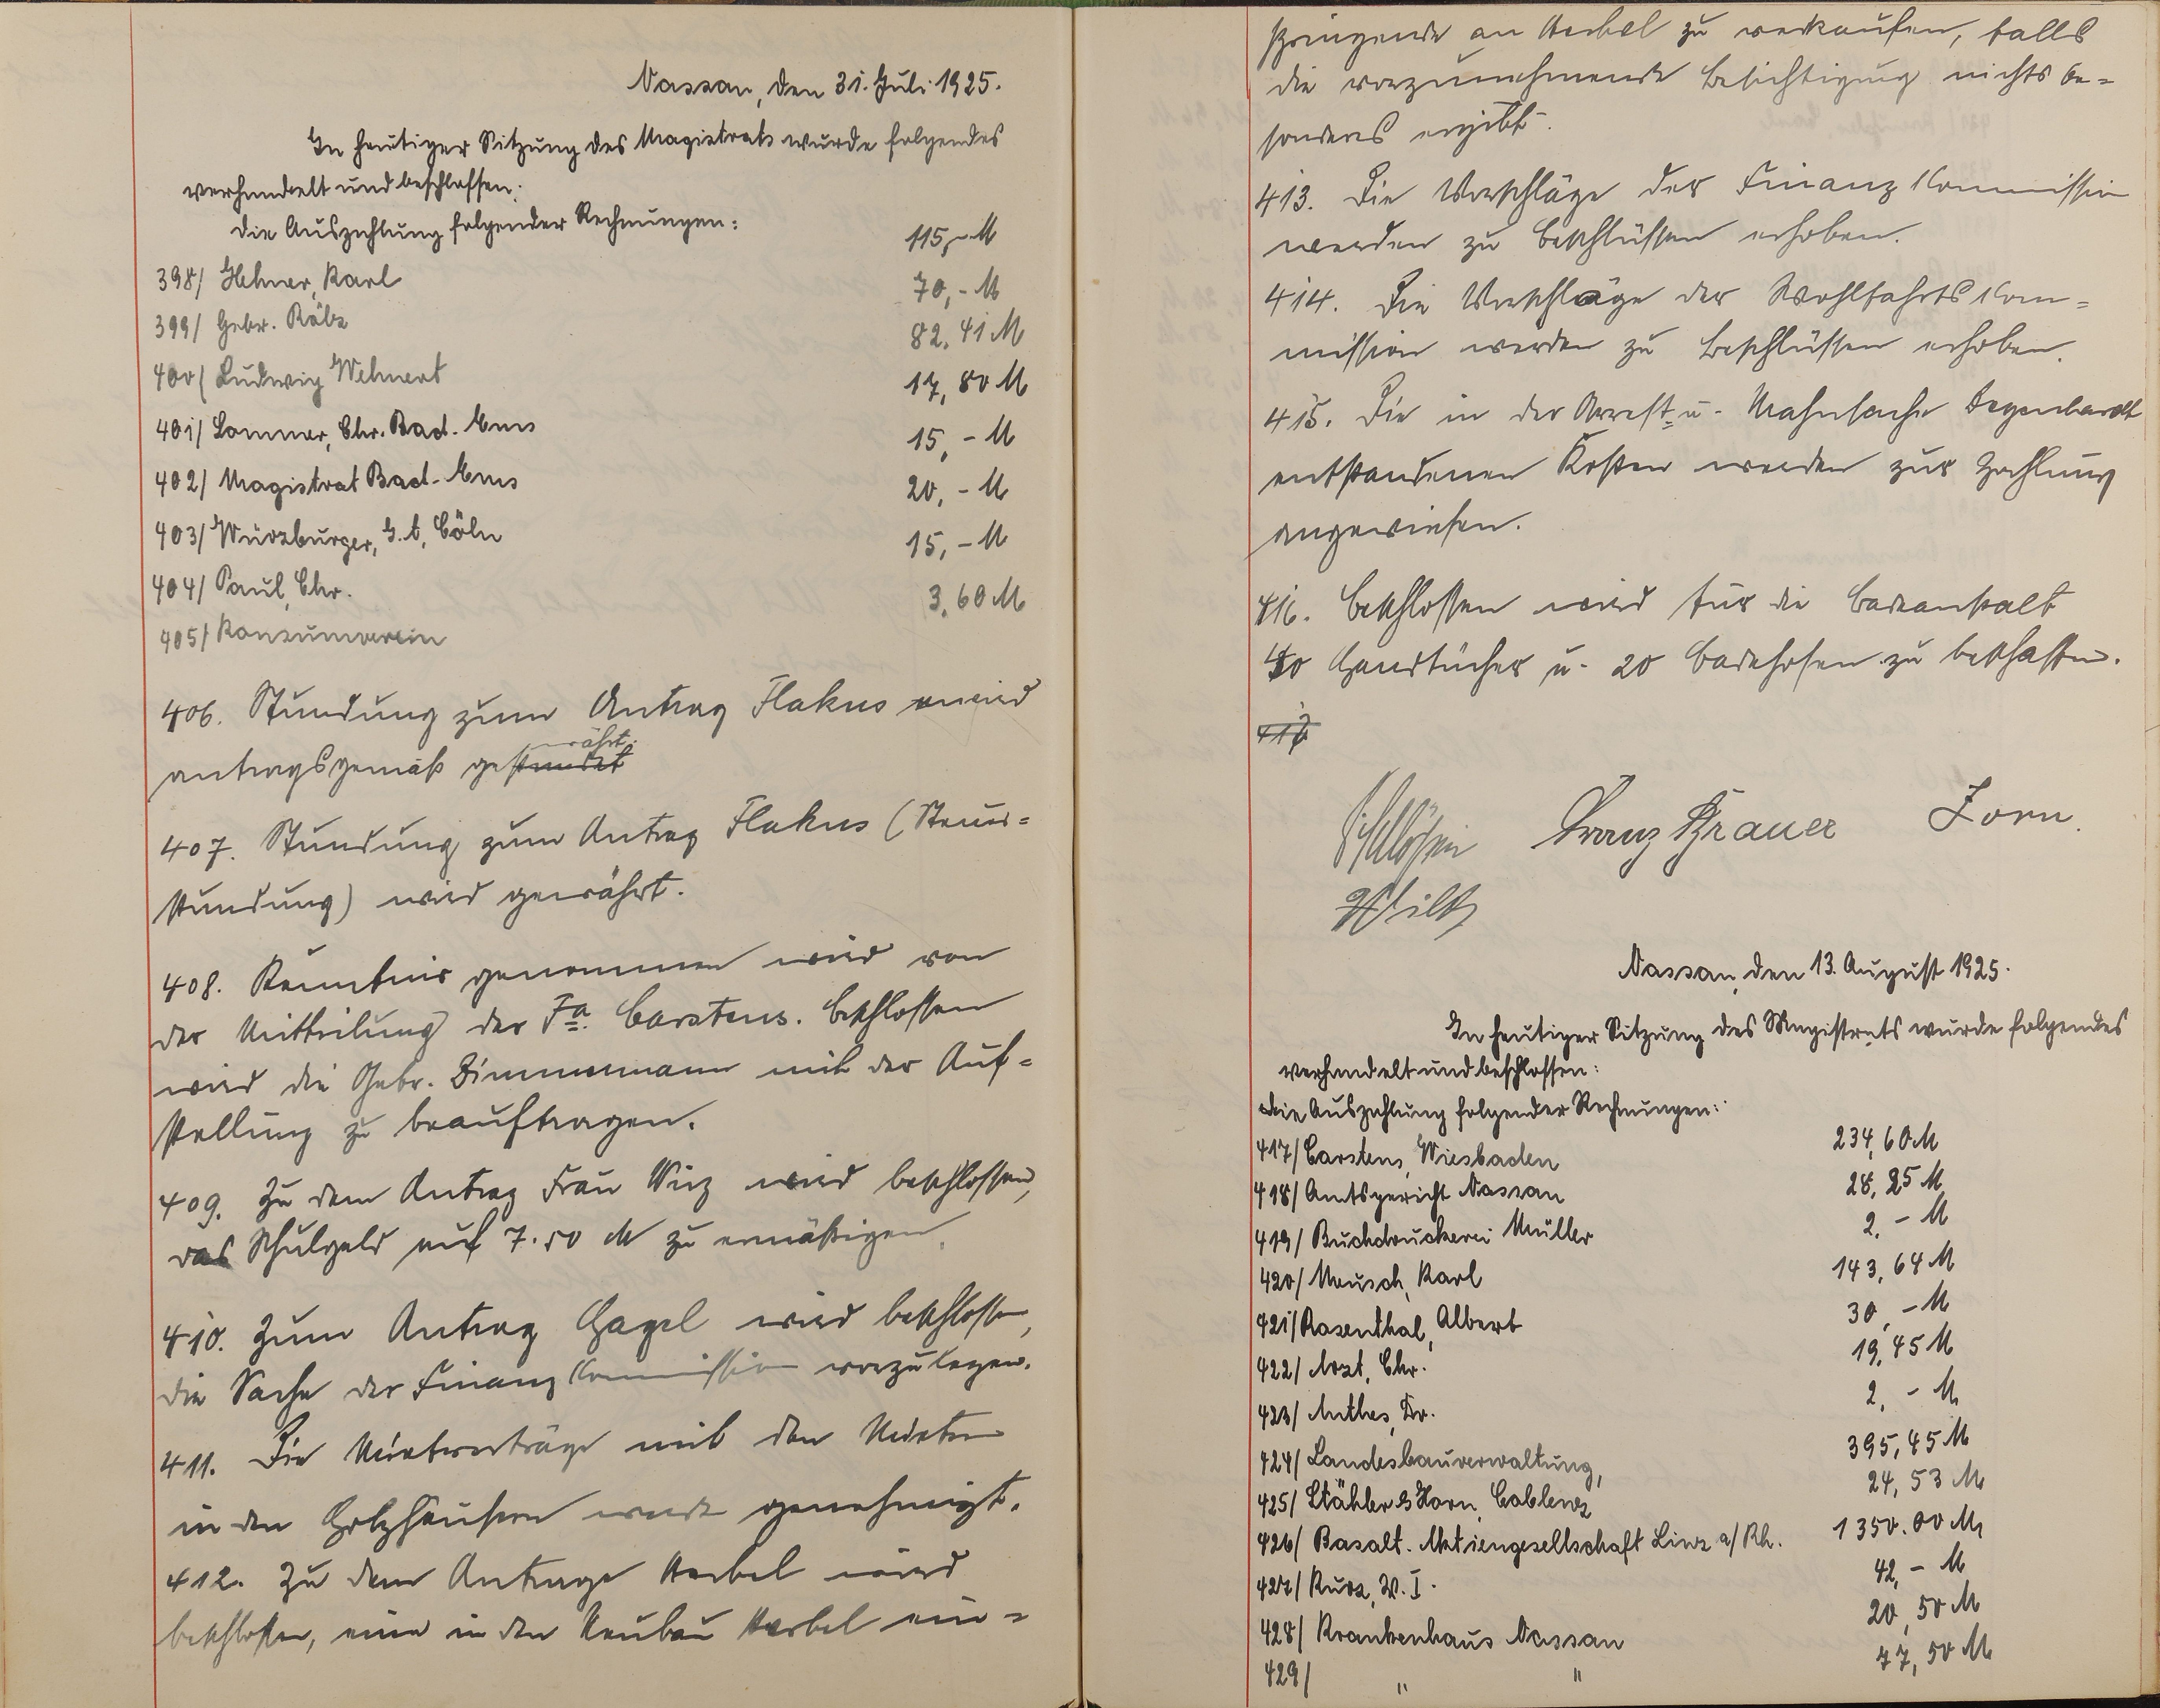 Nassau, den 31. Juli 1925.
In heutiger Sitzung des Magistrats wurde folgendes
verhandelt und beschlossen:
die Auszahlung folgender Rechnungen:
398/ Hehner, Karl 115,- M
399/ Gebr. Räbe 70,- M
400/ Ludwig Wehnert 82,41 M
401/ Lommer, Chr. Bad-Ems 17,80 M
402/ Magistrat Bad-Ems 15,- M
403/ Würzburger, Cöln 20,- M
404/ Paul, Chr. 15,- M
405/ Konsumverein 3,60 M
406. Stundung zum Antrag Flakus wird
antragsgemäß gewährt
407. Stundung zum Antrag Flakus (Steuer=
stundung) wird gewährt.
408. Kenntnis genommen wird von
der Mitteilung der Fa. Carstens. Beschlossen
wird die Gebr. Zimmermann mit der Auf=
stellung zu beauftragen.
409. Zu dem Antrag Frau Wirz wird beschlossen,
das Schulgeld auf 7.50 M zu ermäßigen.
410. Zum Antrag Hagel wird beschlossen,
die Sache der Finanz Commission vorzulegen.
411. Die Mietverträge mit den Mietern
in den Holzhäusern werden genehmigt.
412. Zu dem Antrage Herbel wird
beschlossen, eine in den Neubau Herbel ein=
springende an Herbel zu verkaufen, falls
die vorzunehmende Besichtigung nichts be=
sonderes ergibt.
413. Die Vorschläge der Finanz Kommission
werden zu Beschlüssen erhoben.
414. Die Vorschläge der Wohlfahrts Kom=
mission werden zu Beschlüssen erhoben.
415. Die in der Arrest- u. Mahnsache Degenhardt
entstandenen Kosten werden zur Zahlung
angewiesen.
416. Beschlossen wird für die Badeanstalt
40 Handtücher u. 20 Badehosen zu beschaffen.
417
Franz Brauer Jorn.
Nassau, den 13. August 1925.
In heutiger Sitzung des Magistrats wurde folgendes
verhandelt und beschlossen:
die Auszahlung folgender Rechnungen:
417/ Carstens, Wiesbaden 234,60 M
418/ Amtsgericht Nassau 28,25 M
419/ Buchdruckerei Müller 2,- M
420/ Meusch, Karl 143,64 M
421/ Rosenthal, Albert 30,- M
422/ Arzt, Chr. 19,45 M
423/ Anthes, Dr. 2,- M
424/ Landesbauverwaltung, 395,45 M
425/ Stähler & Horn, Coblenz 24,53 M
426/ Basalt. Aktiengesellschaft Linz a/Rh. 1350.00 M
427/ Kurz, W. I. 42,- M
428/ Krankenhaus Nassau 20,50 M
429/ " " 77,50 M